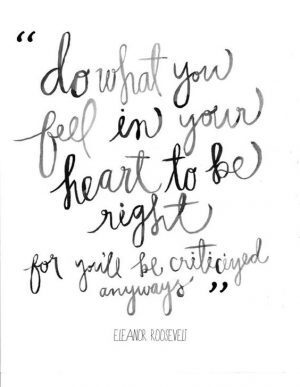 “
do what you
feel in your
heart to be
right
for you'll be criticized
anyways ”
ELEANOR ROOSEVELT